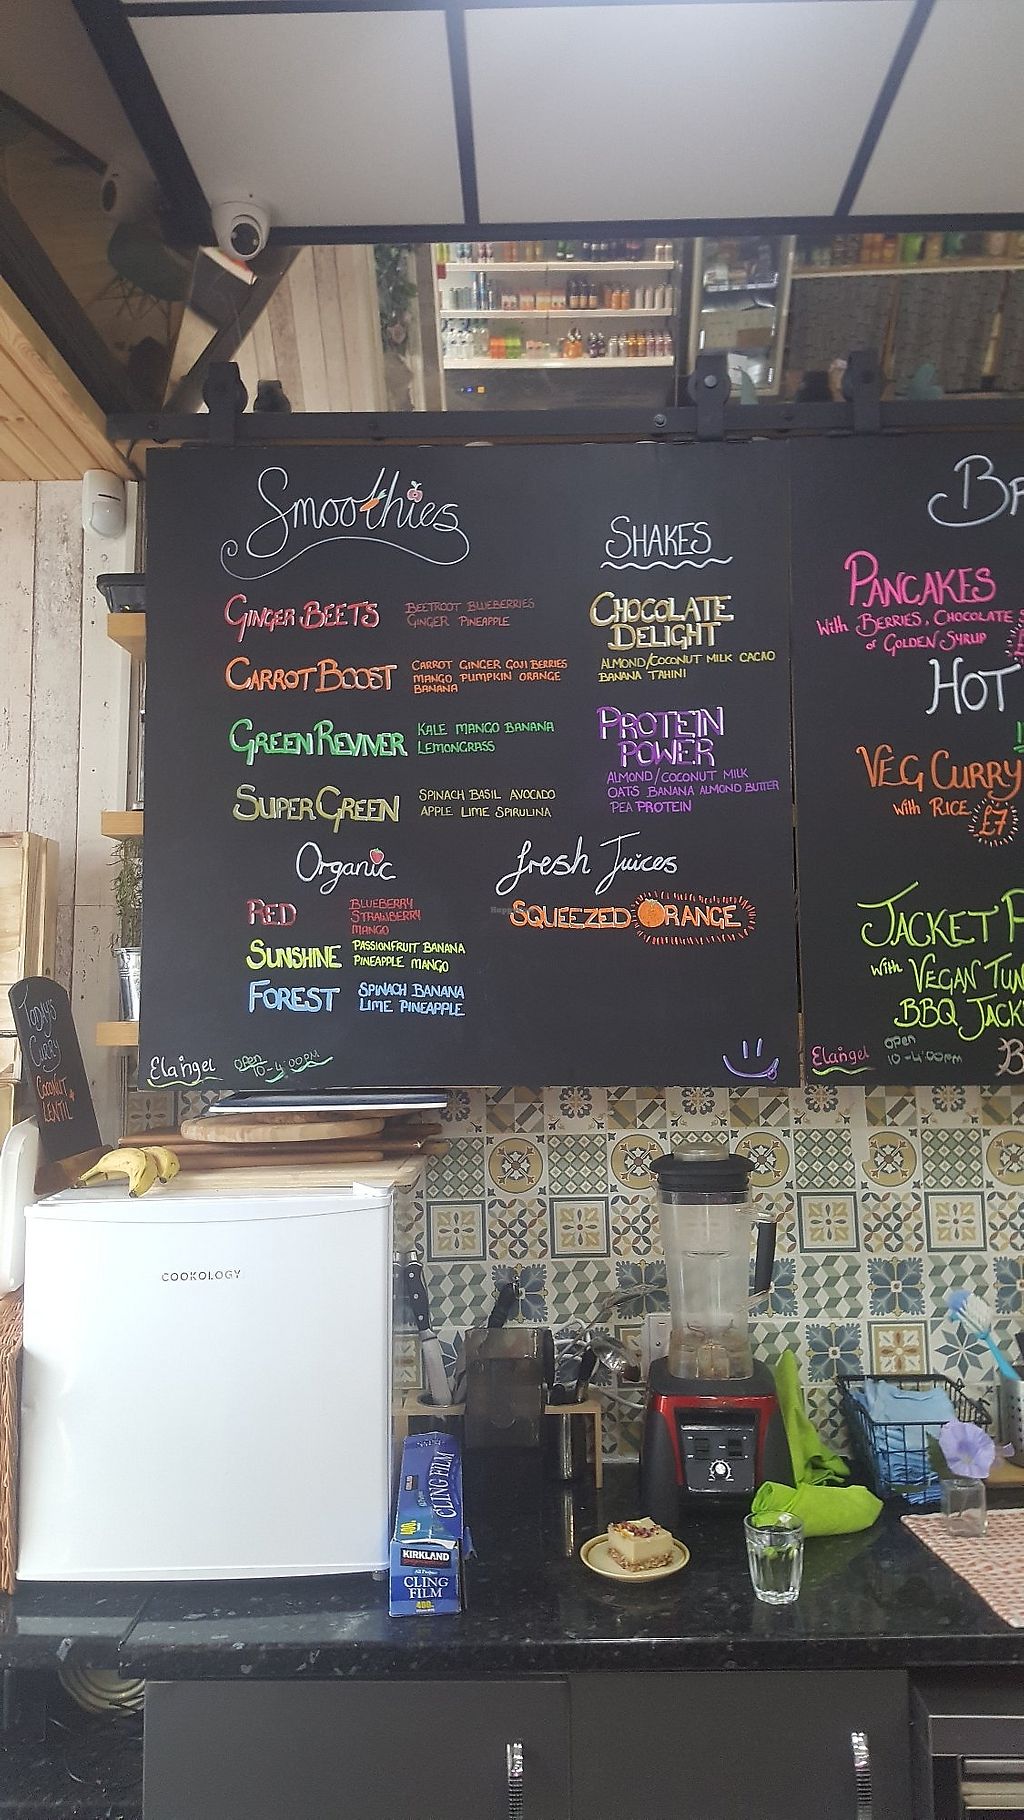 Smoothies
GINGER BEETS
BEETROOT BLUEBERRIES
GINGER PINEAPPLE
CARROT BOOST
CARROT GINGER GOJI BERRIES
MANGO PUMPKIN ORANGE
BANANA
GREEN REVIVER
KALE MANGO BANANA
LEMONGRASS
SUPER GREEN
SPINACH BASIL AVOCADO
APPLE LIME SPIRULINA
Organic
RED
BLUEBERRY
STRAWBERRY
MANGO
SUNSHINE
PASSIONFRUIT BANANA
PINEAPPLE MANGO
FOREST
SPINACH BANANA
LIME PINEAPPLE
SHAKES
CHOCOLATE
DELIGHT
ALMOND/COCONUT MILK CACAO
BANANA TAHINI
PROTEIN
POWER
ALMOND/COCONUT MILK
OATS BANANA ALMOND BUTTER
PEA PROTEIN
Fresh Juices
SQUEEZED ORANGE
Elangel
OPEN
10-4:00PM
PANCAKES
With BERRIES, CHOCOLATE
or GOLDEN SYRUP
HOT
VEG CURRY
with RICE £7
JACKET P
With VEGAN TUN
BBQ JACK
Elangel
OPEN
10-4:00PM
TODAY'S
CURRY
COCONUT +
LENTIL
COOKOLOGY
CLING FILM
400
KIRKLAND
CLING
FILM
400